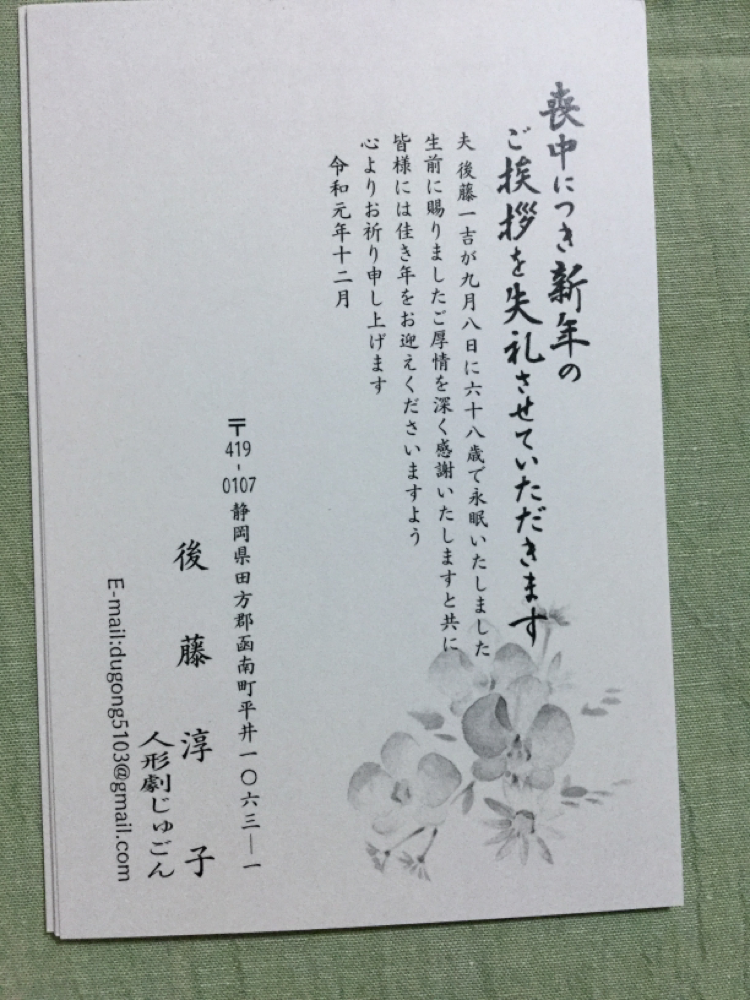 喪中につき新年の
ご挨拶を失礼させていただきます
夫 後藤一吉が九月八日に六十八歳で永眠いたしました
生前に賜りましたご厚情を深く感謝いたしますと共に
皆様には佳き年をお迎えくださいますよう
心よりお祈り申し上げます
令和元年十二月
〒419-0107 静岡県田方郡函南町平井一〇六三―一
後藤淳子
人形劇じゅごん
E-mail:dugong5103@gmail.com